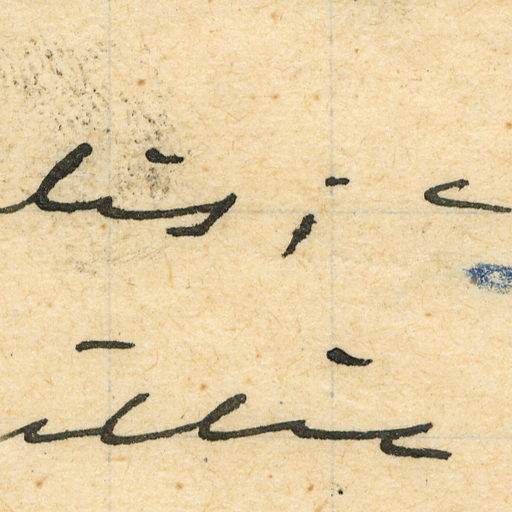 lis; c
illic